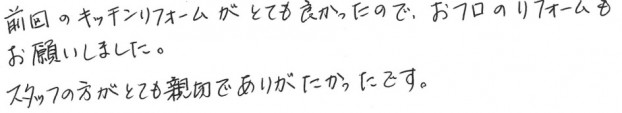 前回のキッチンリフォームがとても良かったので、おフロのリフォームも
お願いしました。
スタッフの方がとても親切でありがたかったです。